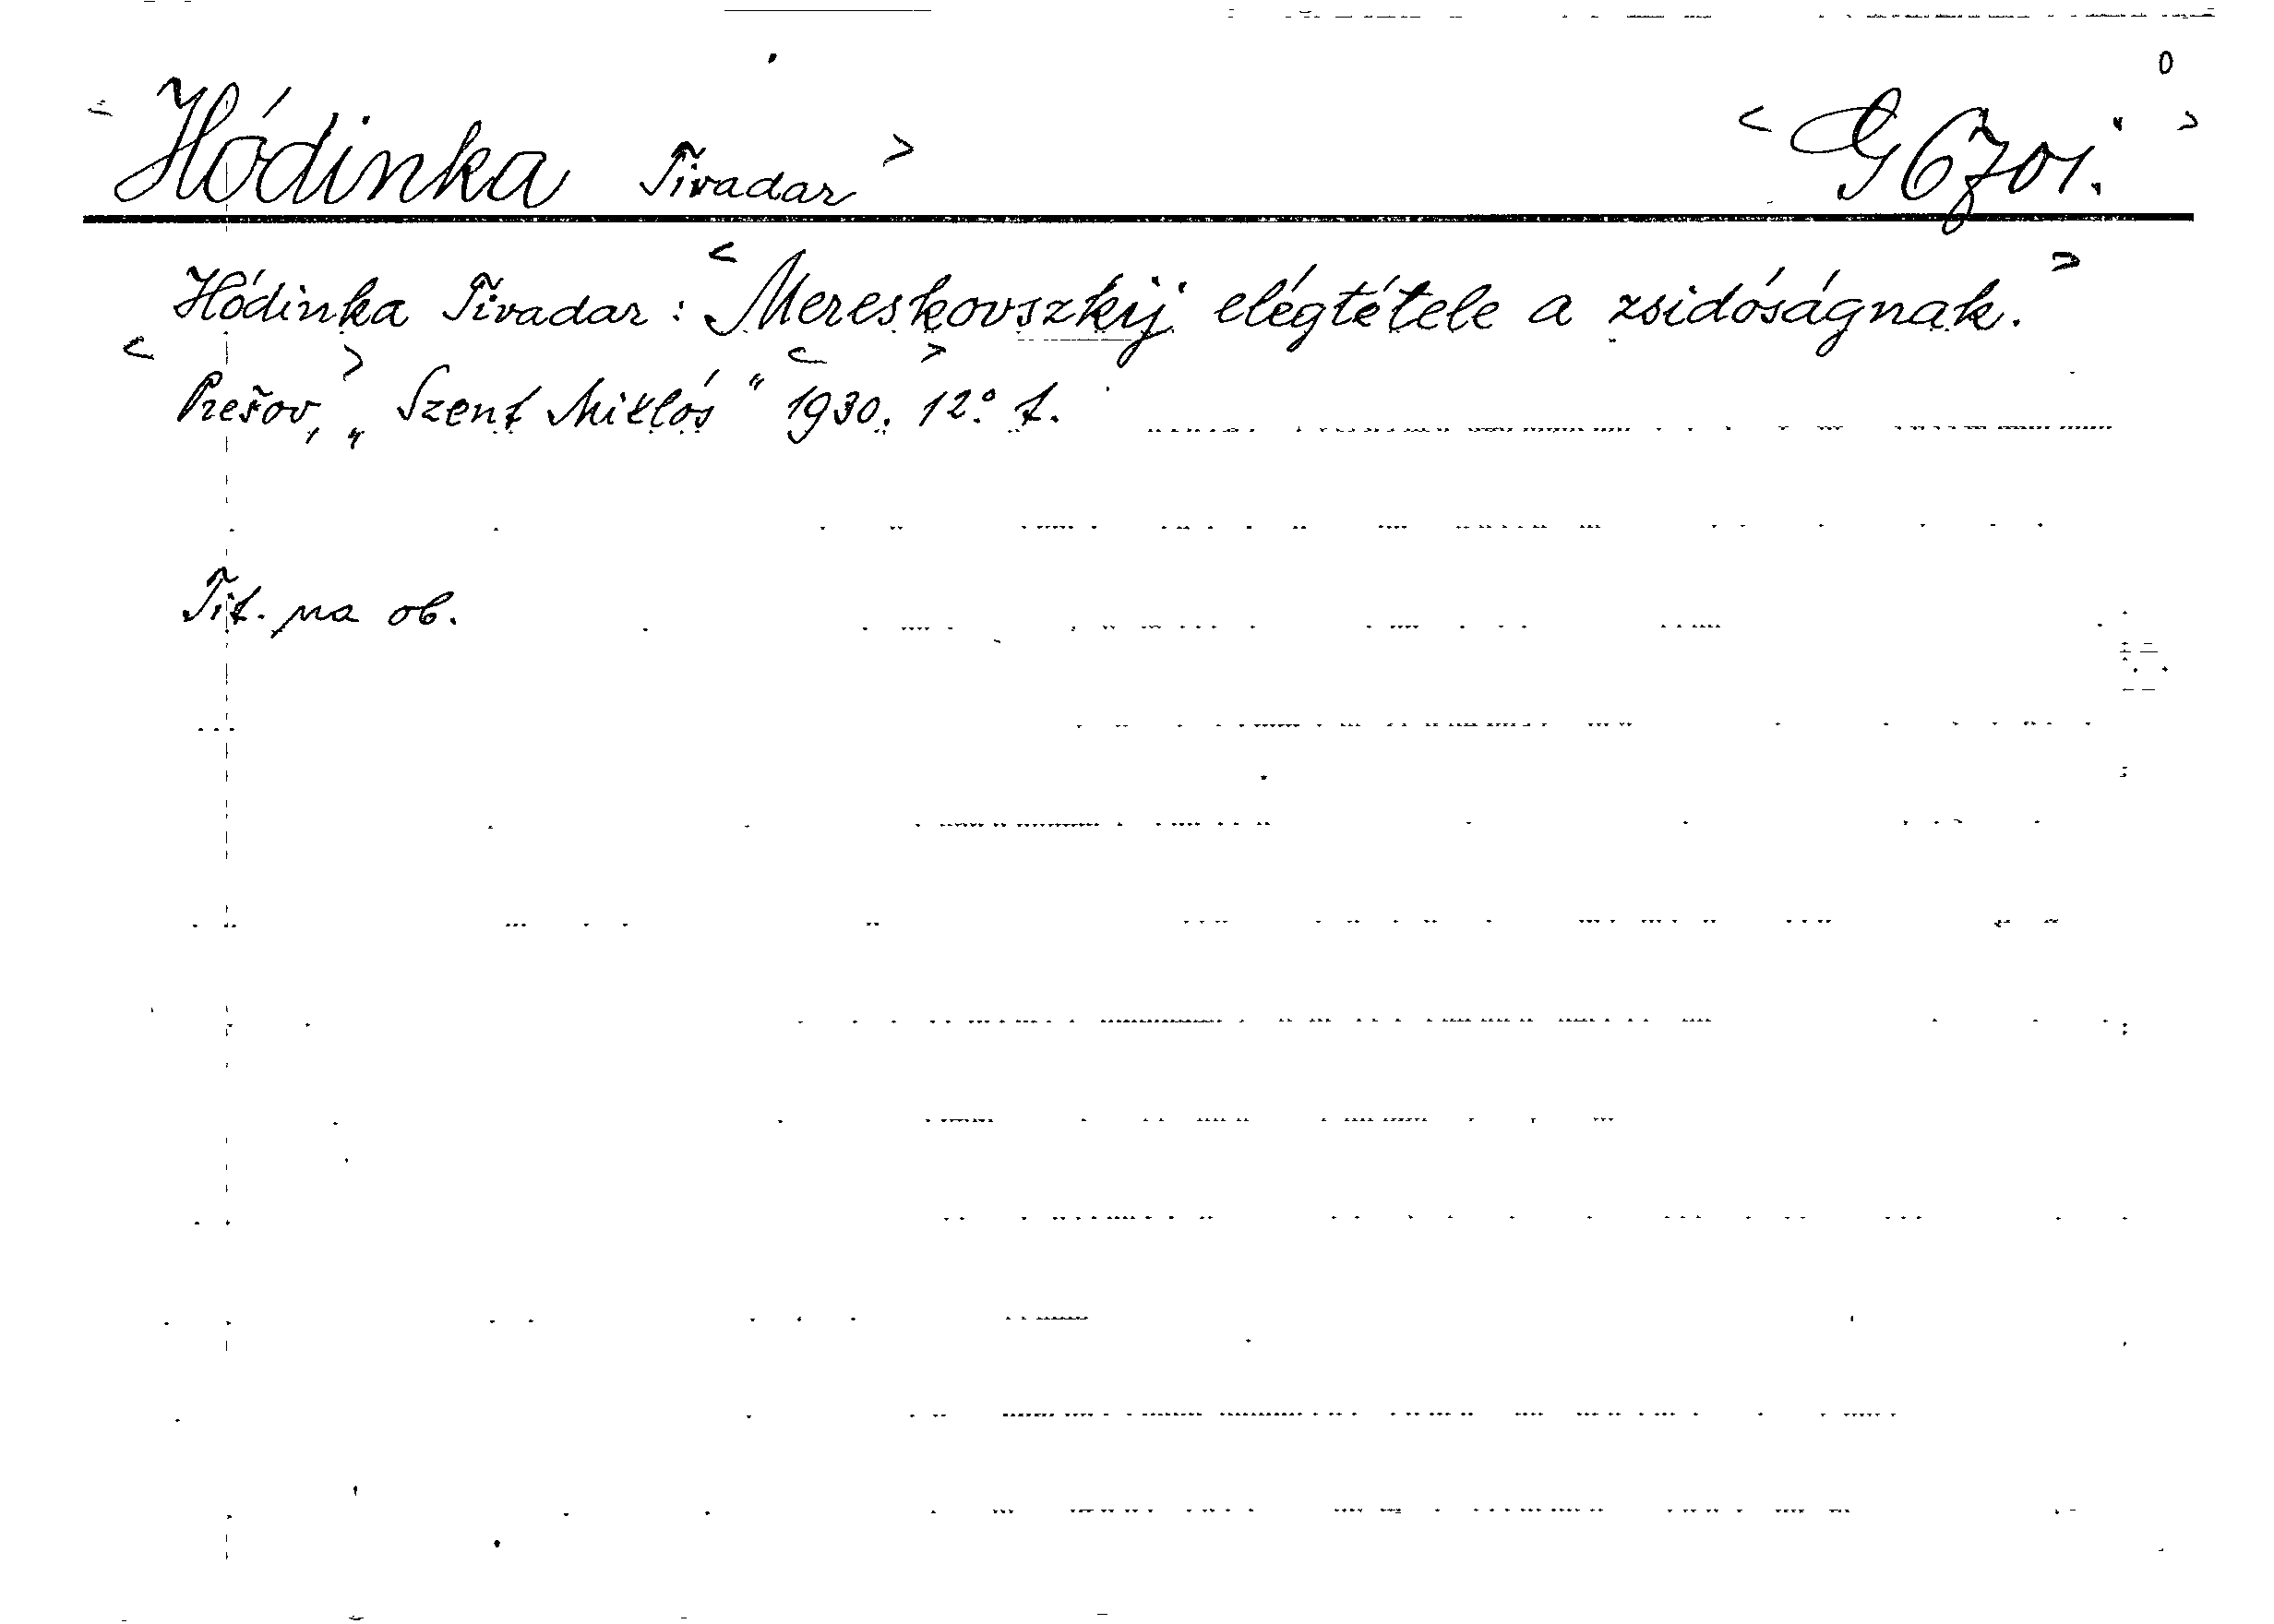 < Hódinka Tivadar > < G 6701. >
Hódinka Tivadar : < Mereskovszkij elégtétele a zsidóságnak. >
< Prešov, > „Szent Miklós" < 1930. > 12° t.
Tit. na ob.